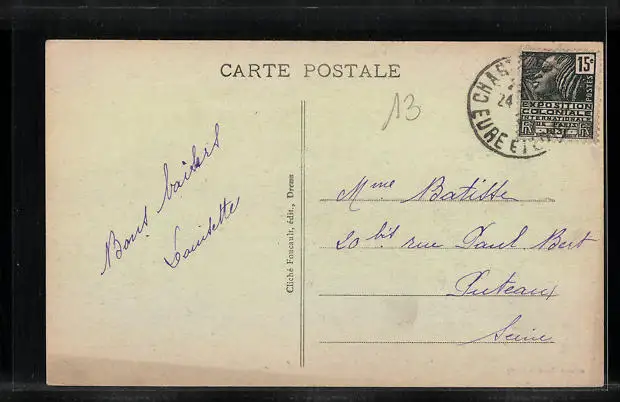 CARTE POSTALE
13
15c
POSTES
EXPOSITION
COLONIALE
INTERNATIONALE
EURE ET
24
Bons baisers
Louisette
Cliché Foucault, édit., Dreux
Mme Batisse
20 bis rue Paul Bert
Puteaux
Seine